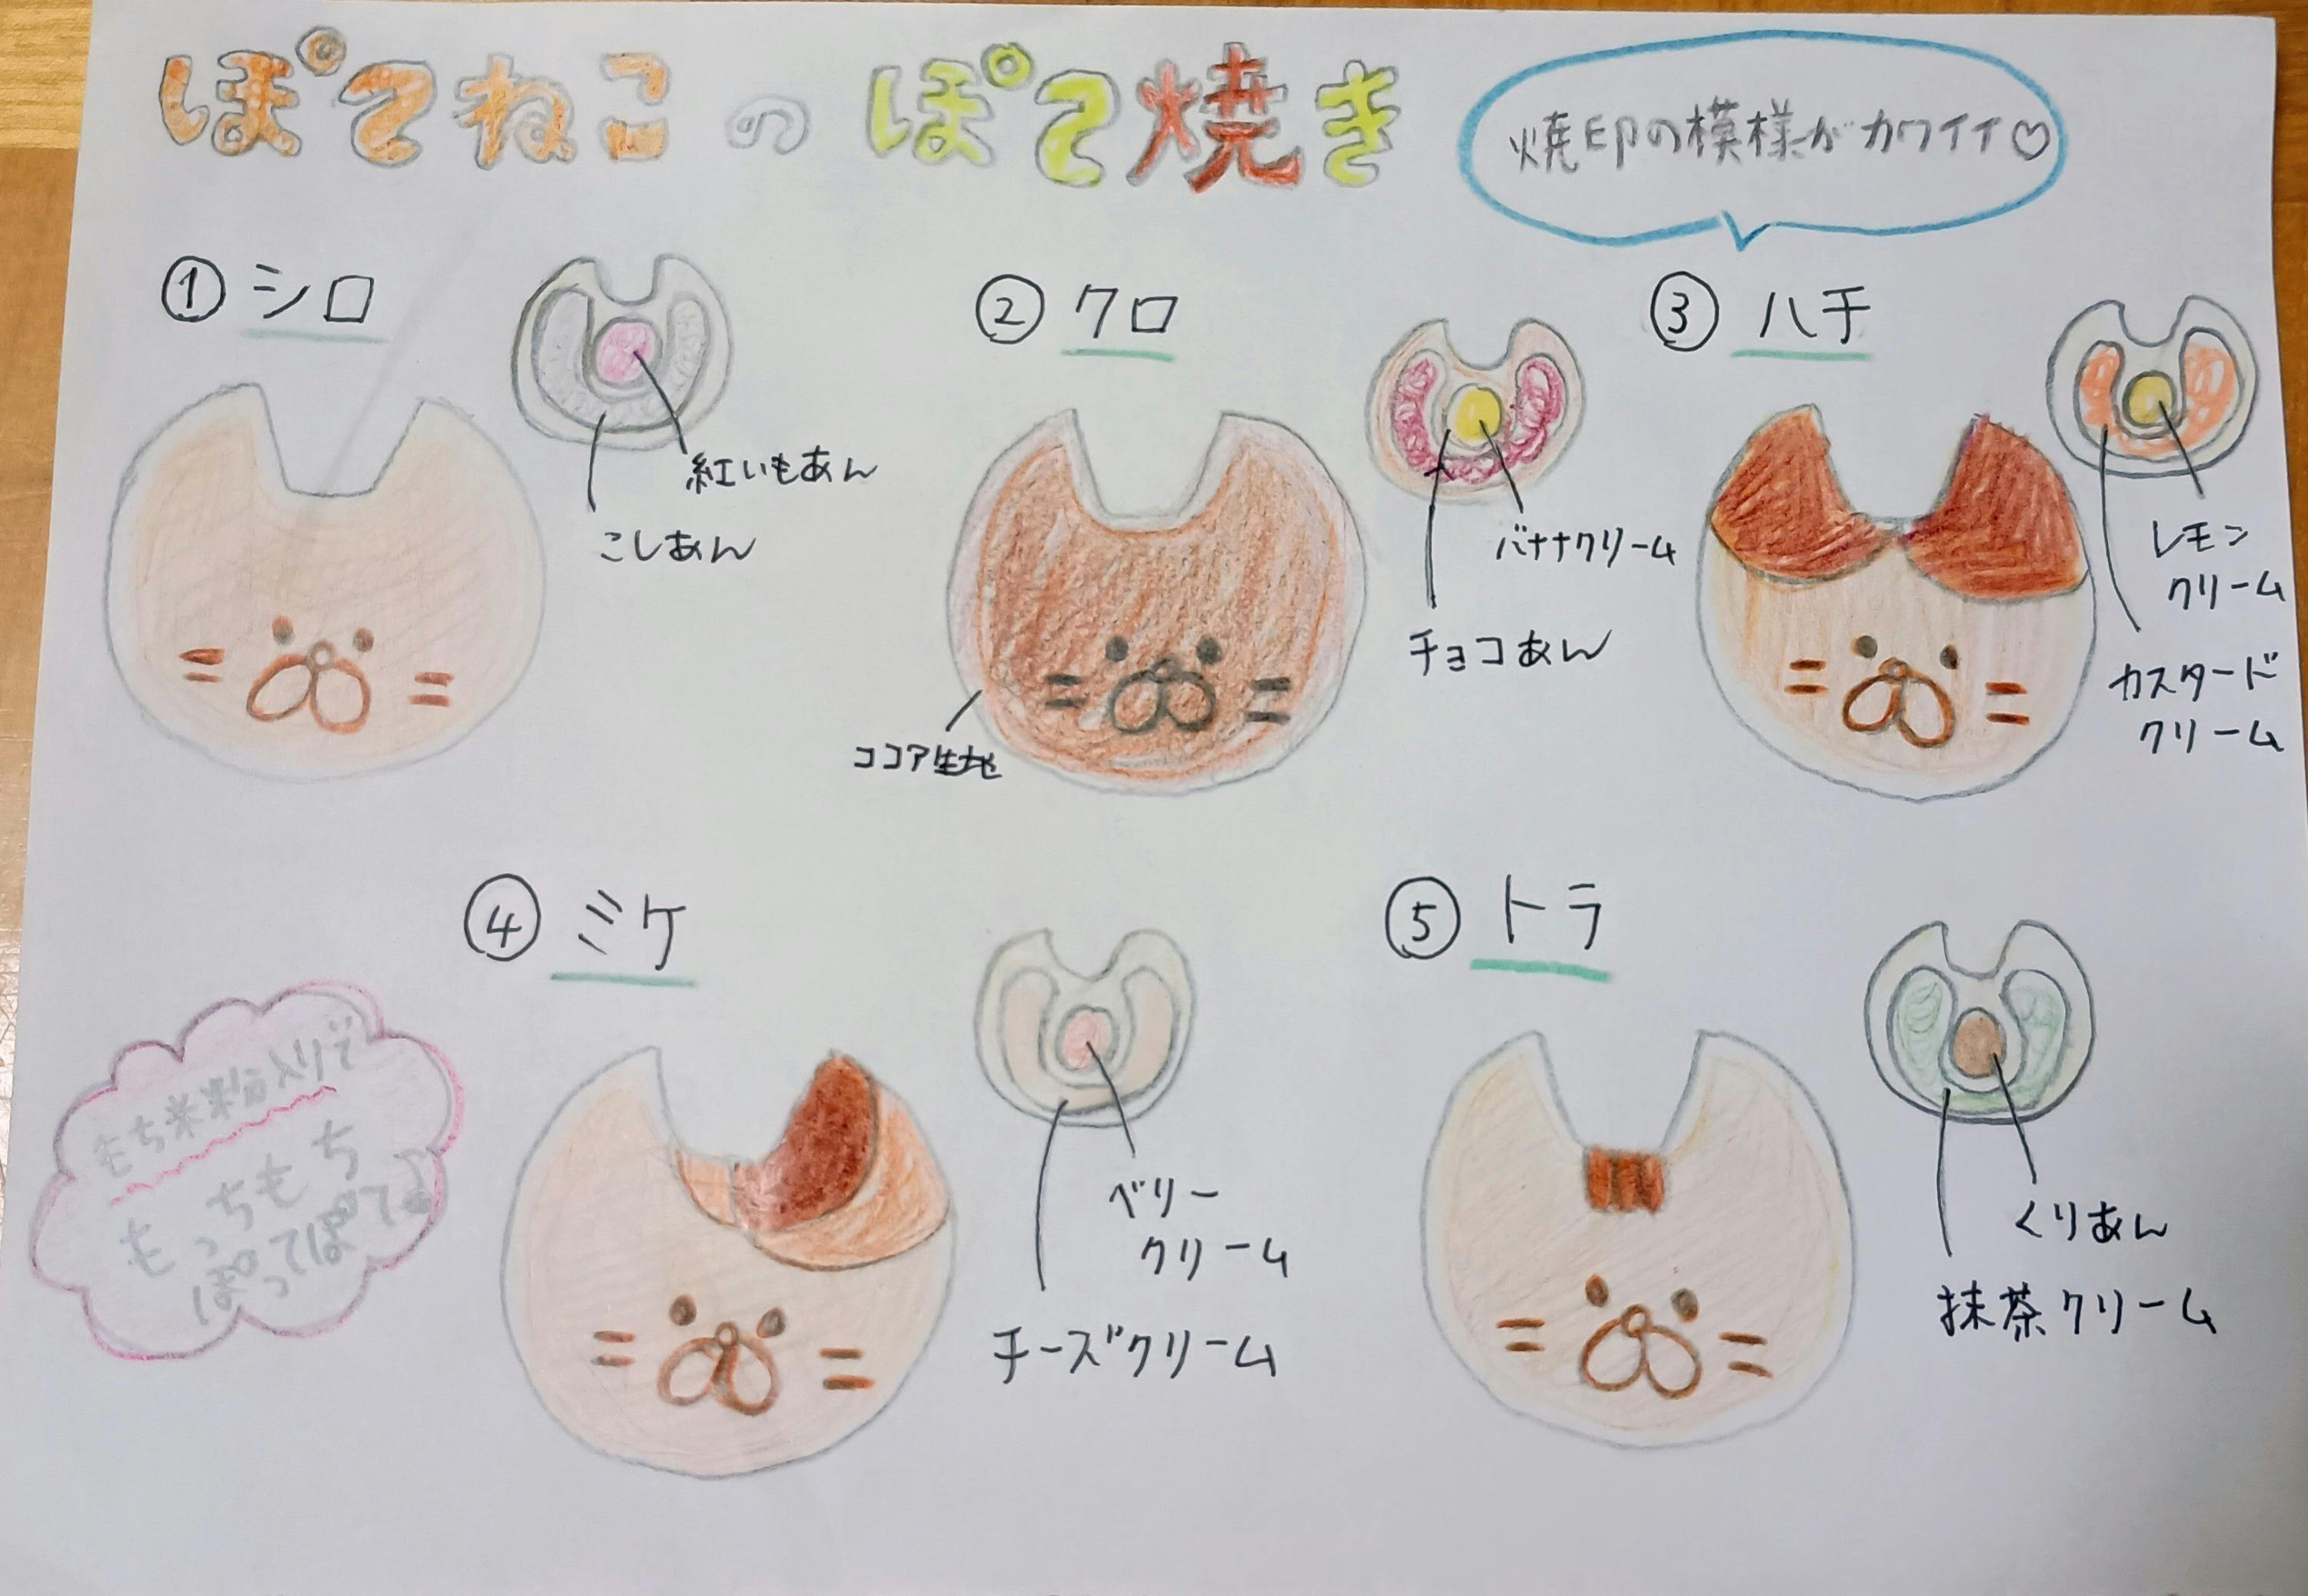 ぽてねこのぽて焼き
焼印の模様がカワイイ♡
① シロ
紅いもあん
こしあん
② クロ
バナナクリーム
チョコあん
ココア生地
③ ハチ
レモン
クリーム
カスタード
クリーム
④ ミケ
ベリー
クリーム
チーズクリーム
⑤ トラ
くりあん
抹茶クリーム
もち米粉入りで
もっちもち
ぽってぽて♪